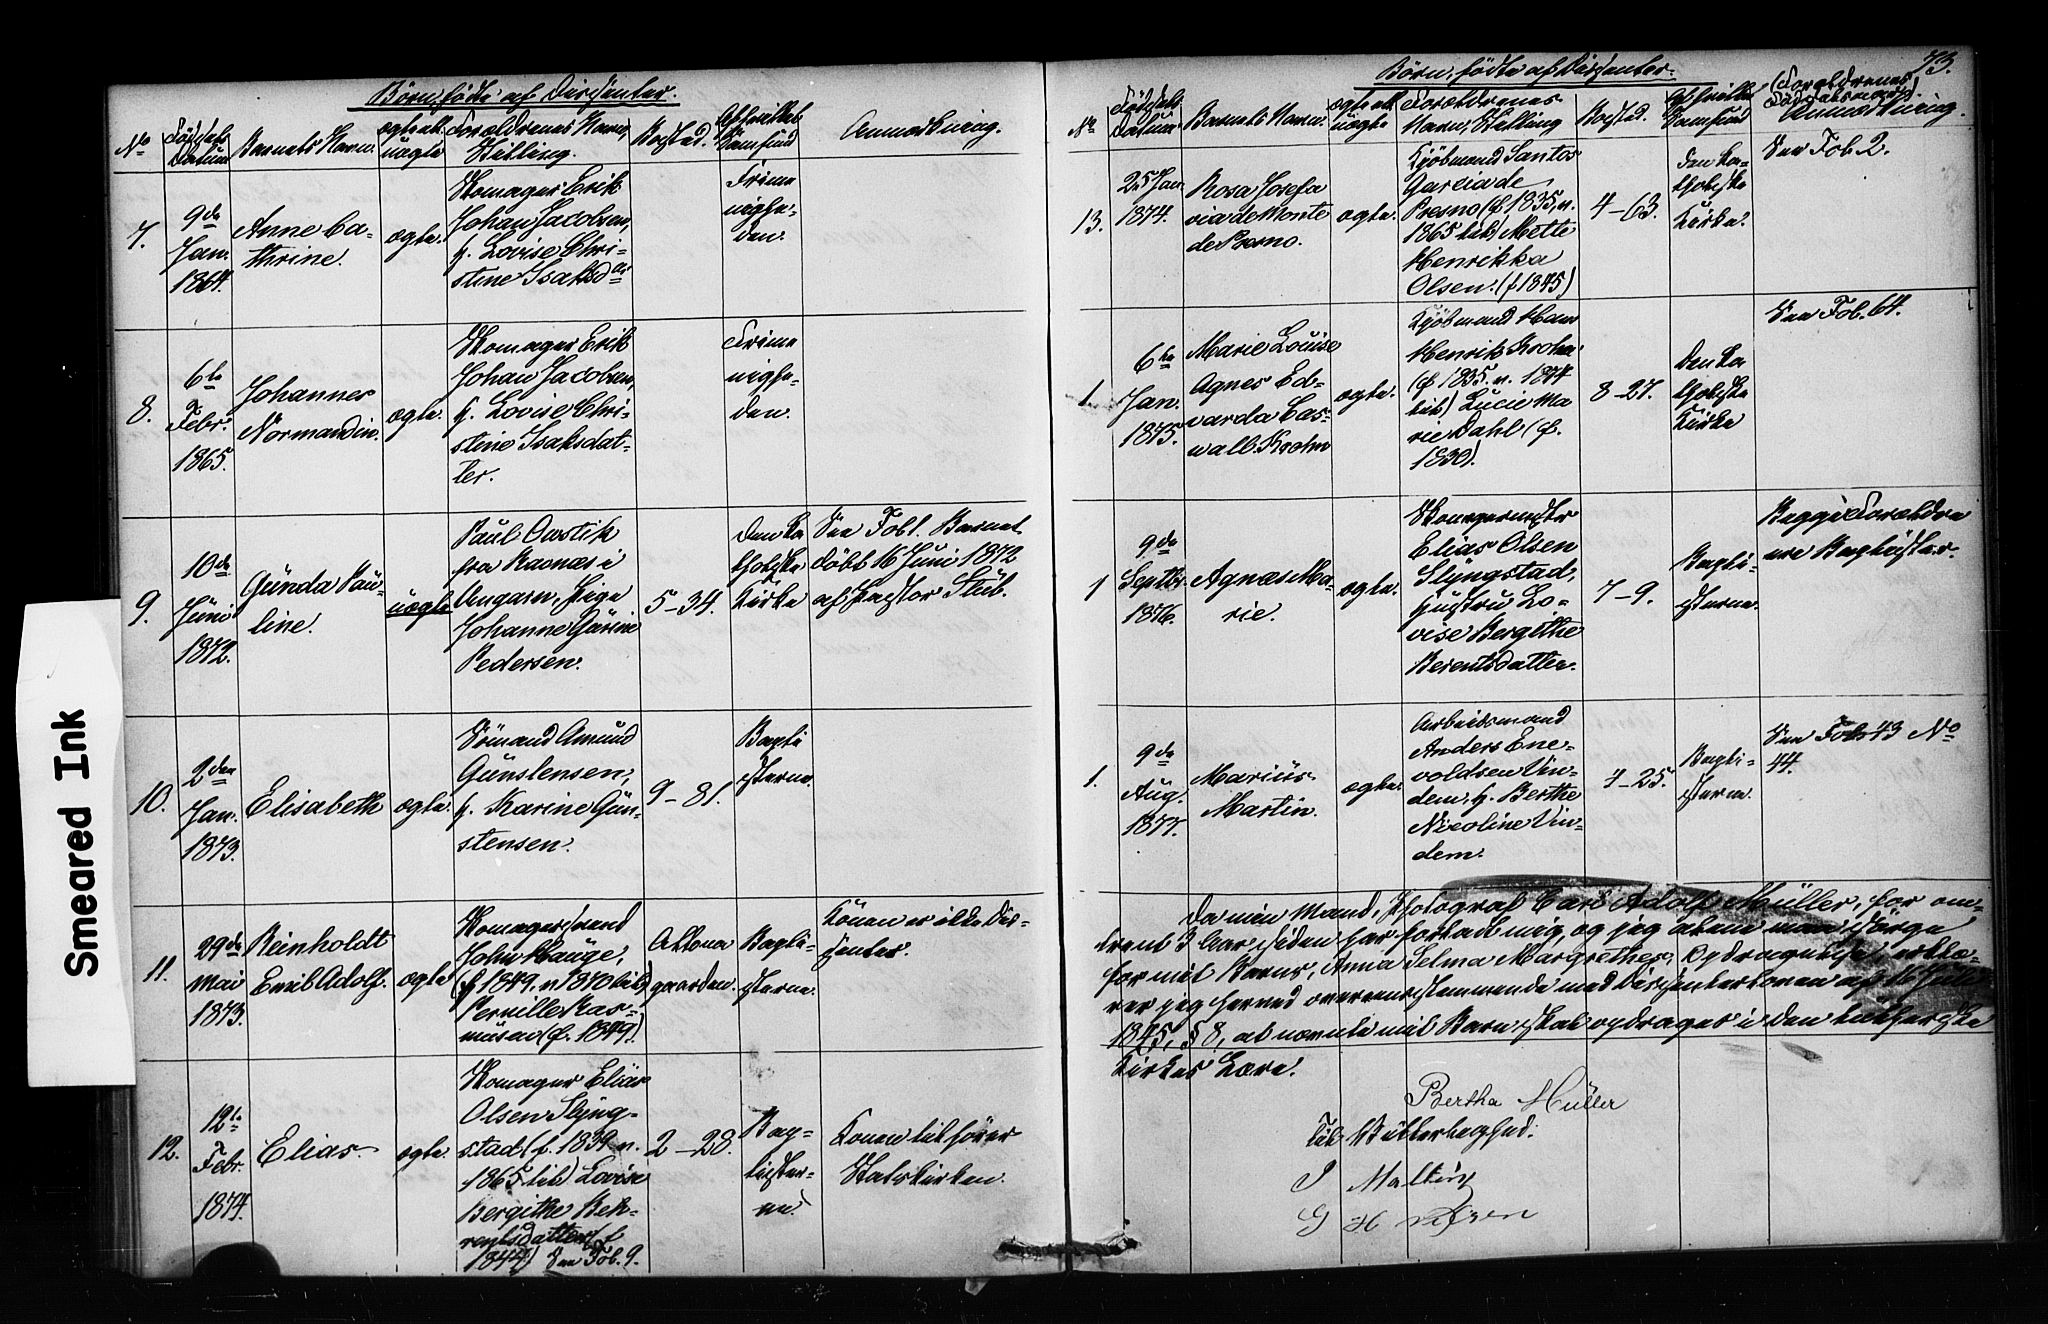 Børn, fødte af Dissenter.
No
Fødsels
Datum
Barnets Navn.
ægte ell.
uægte
Forældrenes Navn,
Stilling.
Bosted.
Samfund
Anmærkning.
7.
9de
Jan.
1864.
Anne Ca-
thrine.
ægte.
Skomager Erik
Johan Jacobsen,
h. Lovise Chri-
stine Isaksd
Frime
nighe-
den.
8.
6te
Febr.
1865.
Johannes
Normandin.
ægte.
Skomager Erik
Johan Jacobsen,
h. Lovise Chri-
stine Isaksdat-
ter.
Frime
nighe-
den.
9.
10de
Juni
1872.
Gunda Pau-
line.
uægte
Paul
fra
i
Ungarn, Pige
Johanne Gurine
Pedersen.
5-34.
Den ka
tholske
Kirke
See Fol. 1. Barnet
døbt 16 Juni 1872
af Pastor Stub.
10.
2den
Jan.
1873.
Elisabeth
ægte.
Sømand Amund
Gunstensen,
h. Karine Gun-
stensen.
9-81.
Bapti
sterne.
11.
29de
Mai
1873.
Reinholdt
Emil Adolf.
ægte
Skomagersvend
John Hauge,
(f. 1849. v. 1870 til)
Pernille Ras-
musen (f. 1849).
Altona
gaarden.
Bapti-
sterne.
Konen er ikke Dis-
senter.
12.
12te
Febr.
1874.
Elias.
ægte.
Skomager Elias
Olsen Slyng-
stad (f. 1839 v.
1865 til) Lovise
Bergithe Beh-
rentsdatter (f.
1844) See Fol. 9.
2-28.
Bap-
tister-
ne.
Konen tilhører
Statskirken.
73.
Børn, fødte af Dissenter.
No
Fødsels
Datum
Barnets Navn.
ægte ell.
uægte
Forældrenes
Navn, Stilling
Bosted.
Samfund
(Forældrenes
Anmærkning.
13.
25 Jan.
1874.
Rosa Josefa
via de Monte
de Presno.
ægte.
Kjøbmand Santos
Garcia de
Presno (f. 1835, v.
1865 til) Mette
Henrikka
Olsen. (f. 1845)
4-63.
Den ka-
tholske
Kirke.
See Fol. 2.
1.
6te
Jan.
1875.
Marie Louise
Agnes Ed-
varda Cas-
wall. Krohn
ægte.
Kjøbmand Ham
Henrik Krohn
(f. 1835. v. 1874
til) Lucie Ma
rie Dahl (f.
1830).
8-27.
Den ka
tholske
Kirke
See Fol. 64.
1
9de
Septbr.
1876.
Agnes Ma-
rie.
ægte.
Skomagermester
Elias Olsen
Slyngstad,
Hustru Lo-
vise Bergithe
Berentsdatter.
7-9.
Bapti-
sterne.
Begge Forældre
ere Baptister.
1.
9de
Aug.
1877.
Marius
Martin.
ægte.
Arbeidsmand
Anders Ene-
voldsen Vin-
dem, h. Berthe
Nicoline Vin-
dem.
7-25.
Bapti-
sterne.
See Fol. 43 No
44.
Da min Mand, Photograf Carl Adolf Müller, for om-
trent 3 Aar siden har forladt mig, og jeg alene maa sørge
for mit Barns, Anna Selma Margrethes, Opdragelse, erklæ-
rer jeg herved overensstemmende med Dissenterloven af 16 Juli
1845, § 8, at nævnte mit Barn skal opdrages i den lutherske
Kirkes Lære.
Bertha Müller
Til Vitterlighed:
J Malling
G H
Smeared Ink